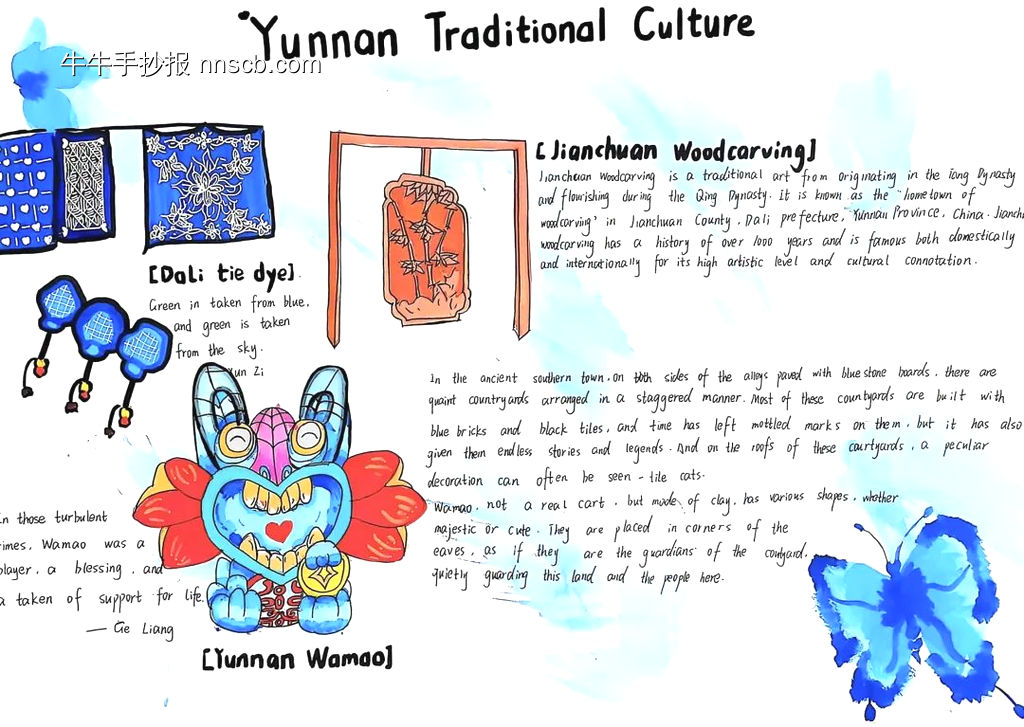 Yunnan Traditional Culture
牛牛手抄报 nnscb.com
[Jianchuan Woodcarving]
Jianchuan Woodcarving is a traditional art from originating in the Tang Dynasty
and flourishing during the Qing Dynasty. It is known as the "hometown of
woodcarving" in Jianchuan County, Dali prefecture, Yunnan Province, China. Jianchu
woodcarving has a history of over 1000 years and is famous both domestically
and internationally for its high artistic level and cultural connotation.
[Dali tie dye]
Green in taken from blue,
and green is taken
from the sky.
Xun Zi
In the ancient southern town, on both sides of the alleys paved with bluestone boards, there are
quaint countryards arranged in a staggered manner. Most of these countyards are built with
blue bricks and black tiles, and time has left mottled marks on them, but it has also
given them endless stories and legends. And on the roofs of these courtyards, a peculiar
decoration can often be seen - tile cats.
Wamao, not a real cart, but made of clay, has various shapes, whether
majestic or cute. They are placed in corners of the
eaves, as if they are the guardians of the courtyard,
quietly guarding this land and the people here.
In those turbulent
times, Wamao was a
player, a blessing, and
a taken of support for life.
— Ge Liang
[Yunnan Wamao]